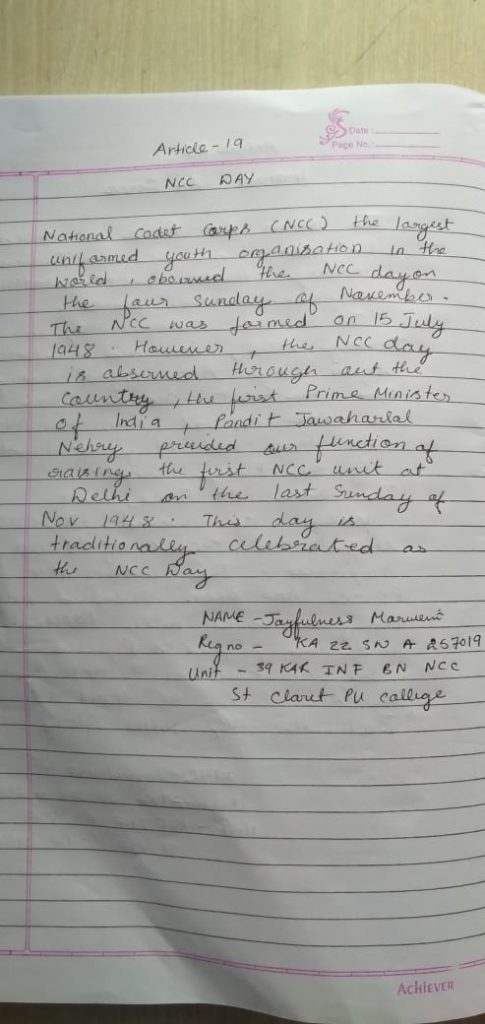 Date :
Page No :
Article - 19
NCC DAY
National Cadet Corps (NCC) the largest
uniformed youth organisation in the
world, observed the NCC day on
the four Sunday of November.
The NCC was formed on 15 July
1948. However, the NCC day
is observed through out the
Country, the first Prime Minister
of India, Pandit Jawaharlal
Nehry presided our function of
raising the first NCC unit at
Delhi on the last Sunday of
Nov 1948. This day is
traditionally celebrated as
the NCC Day
NAME - Jayfulness
Reg no - KA 22 SN A 257019
Unit - 39 KAR INF BN NCC
St Claret PU college
ACHIEVER